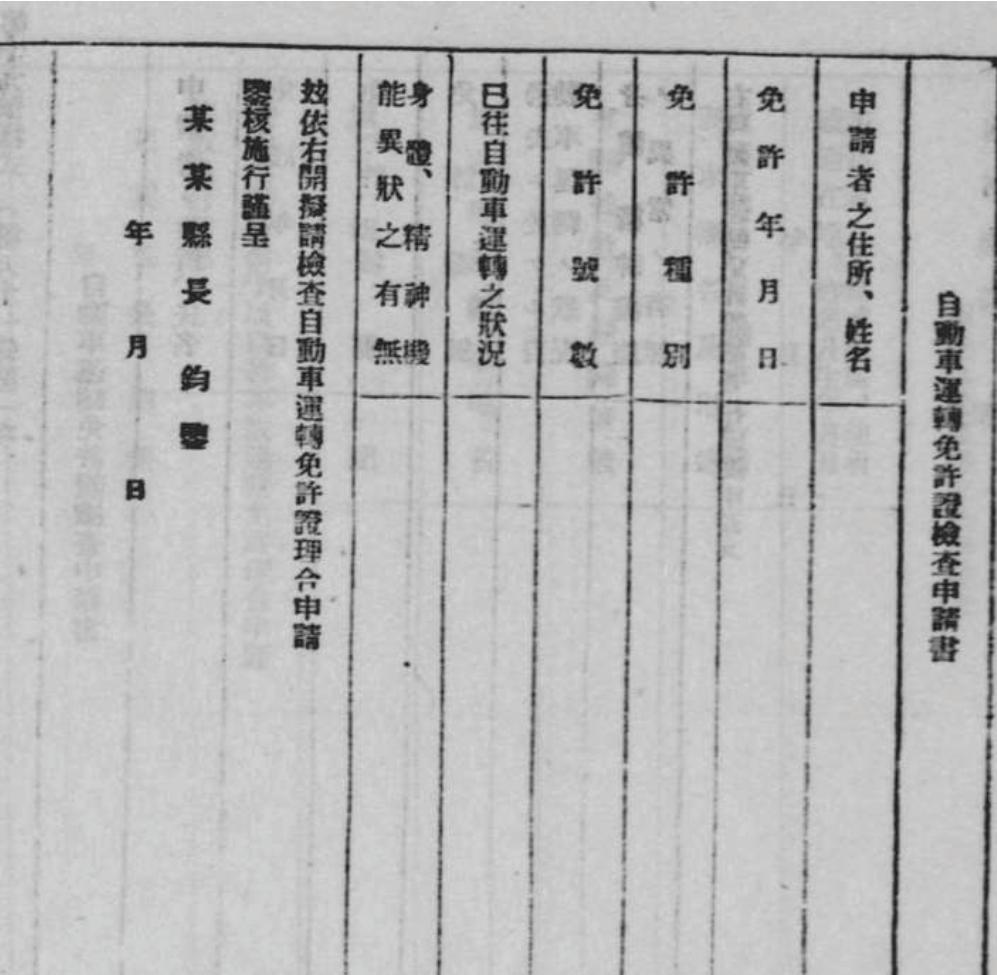 自動車運轉免許證檢查申請書
申請者之住所、姓名
免許年月日
免許種別
免許號數
已往自動車運轉之狀況
身體、精神機
能異狀之有無
玆依右開擬請檢查自動車運轉免許證理合申請
鑒核施行謹呈
某某縣長鈞鑒
年月日